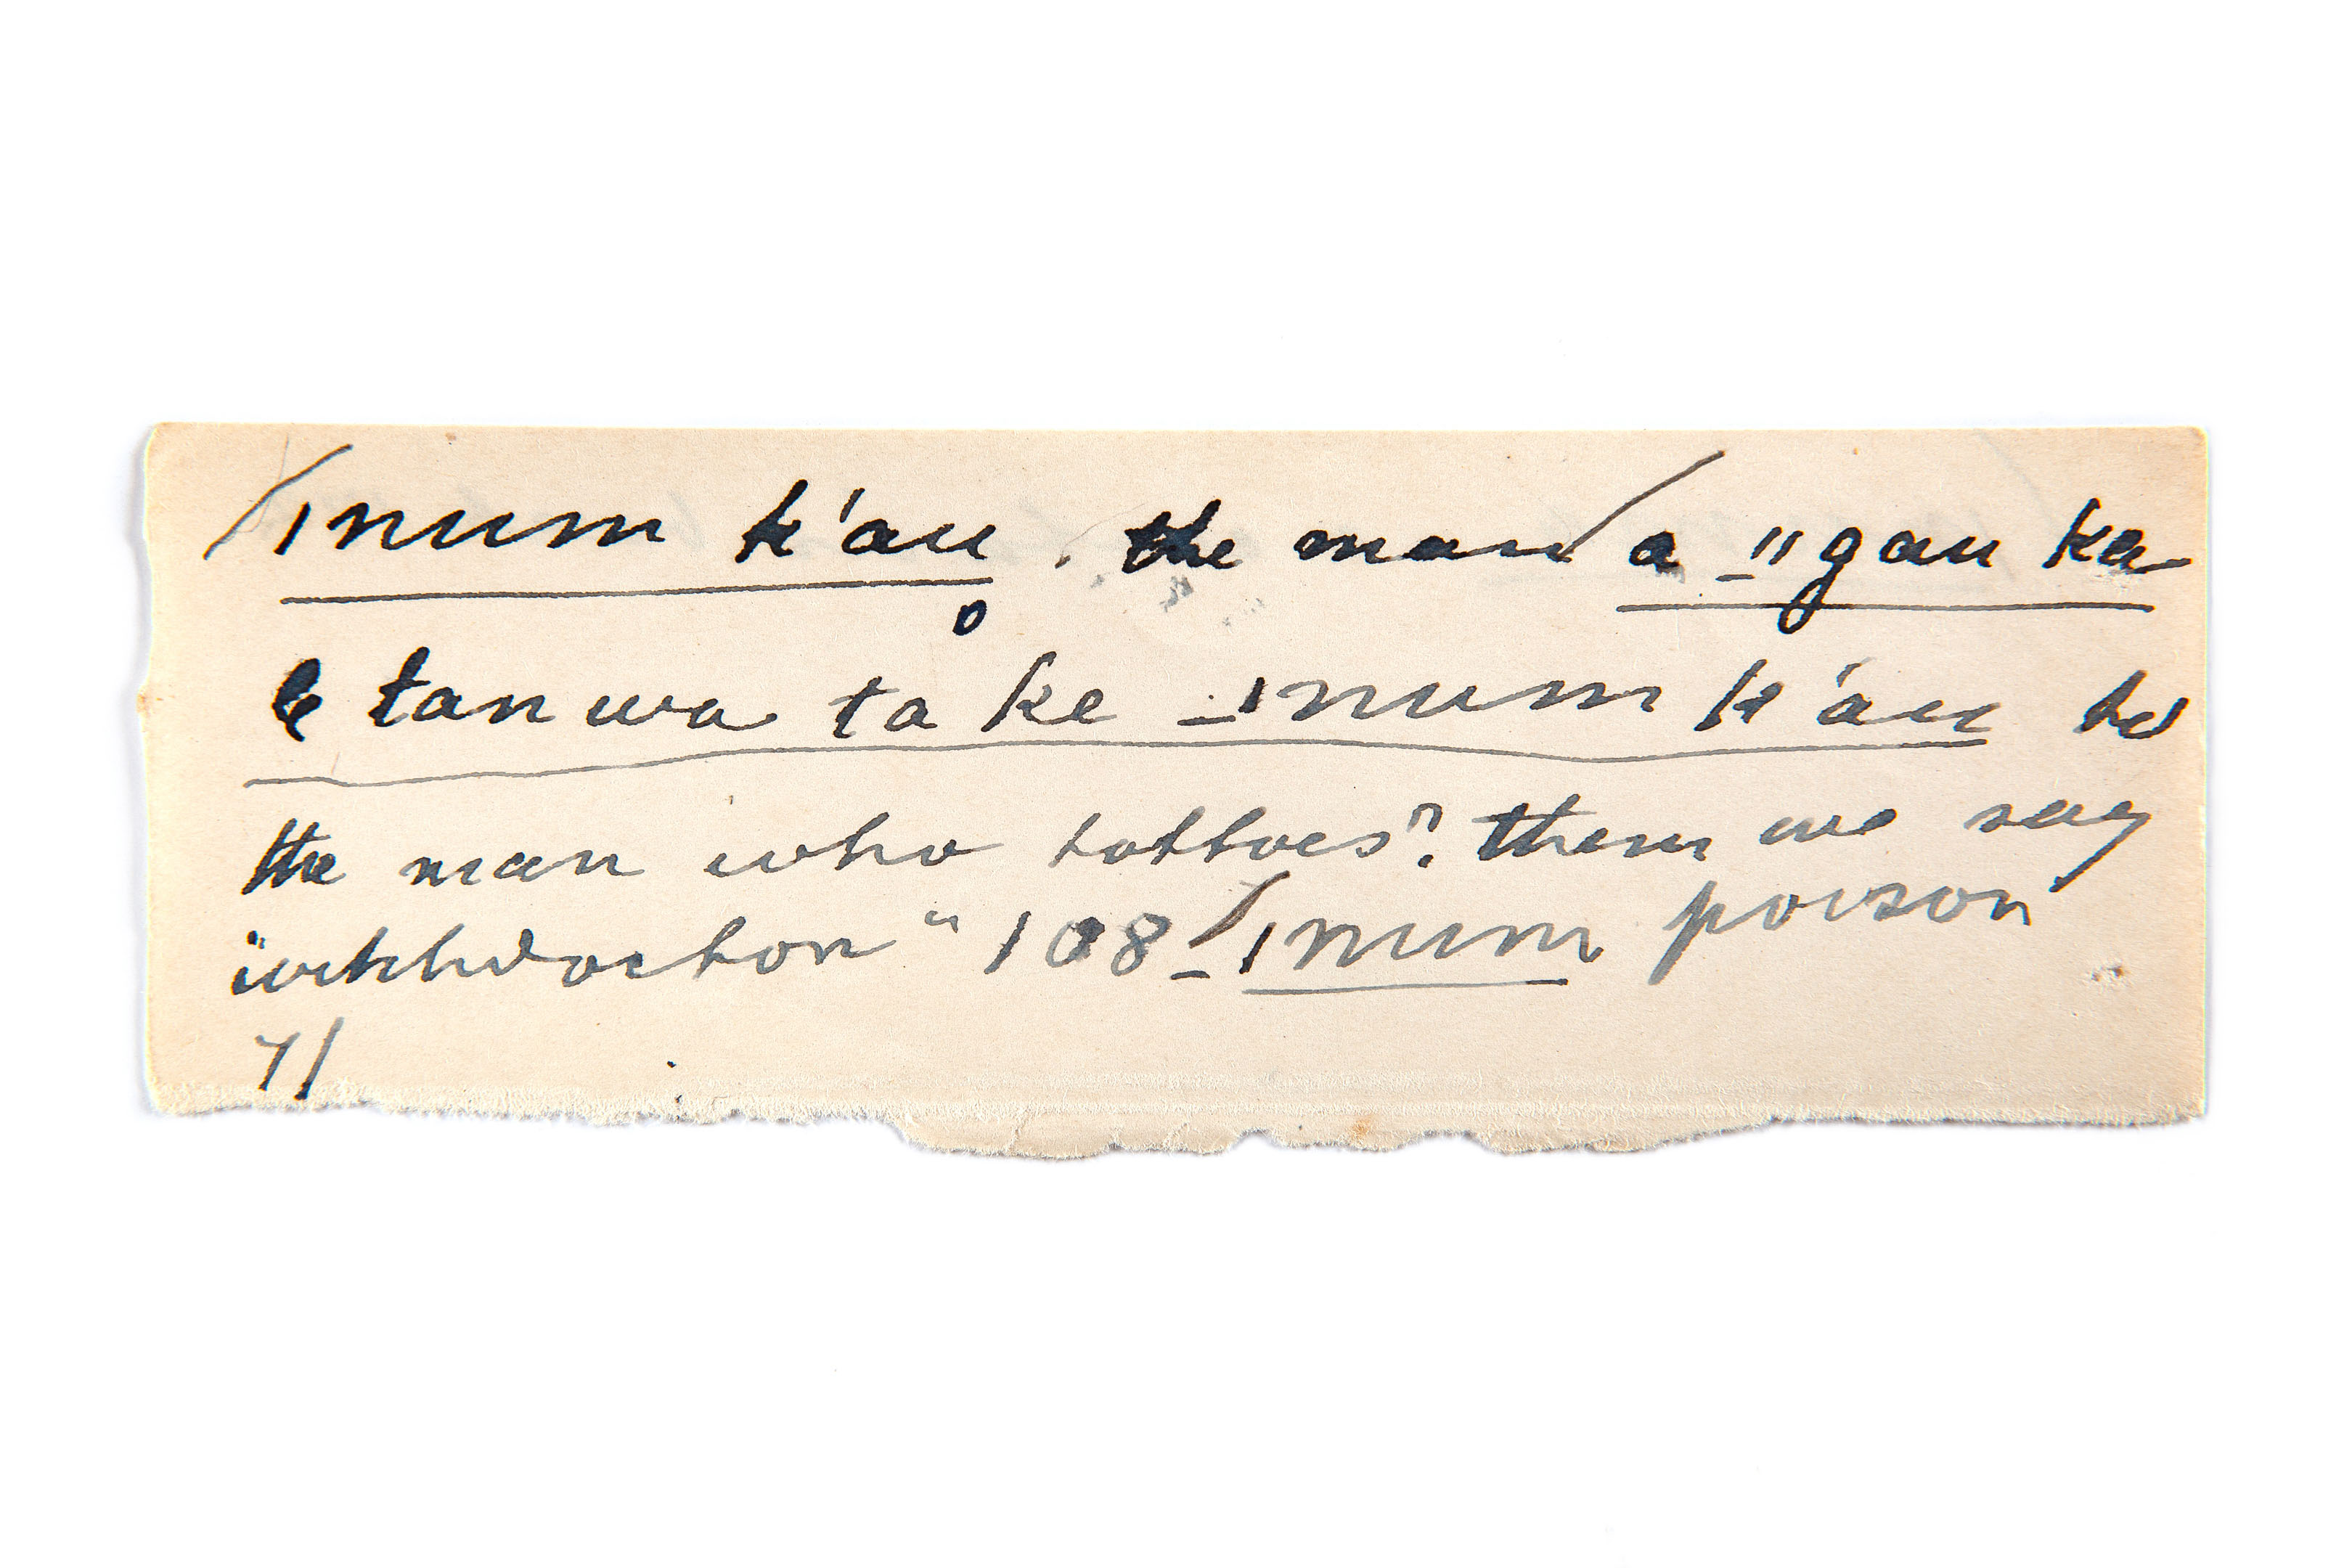 /ǀnum k'au, the man / a _ǁgau ka
e tan wa ta ke _ǀnum k'au to
the man who tottoes? them we say
"witchdoctor" 108 _/ǀnum poison
71